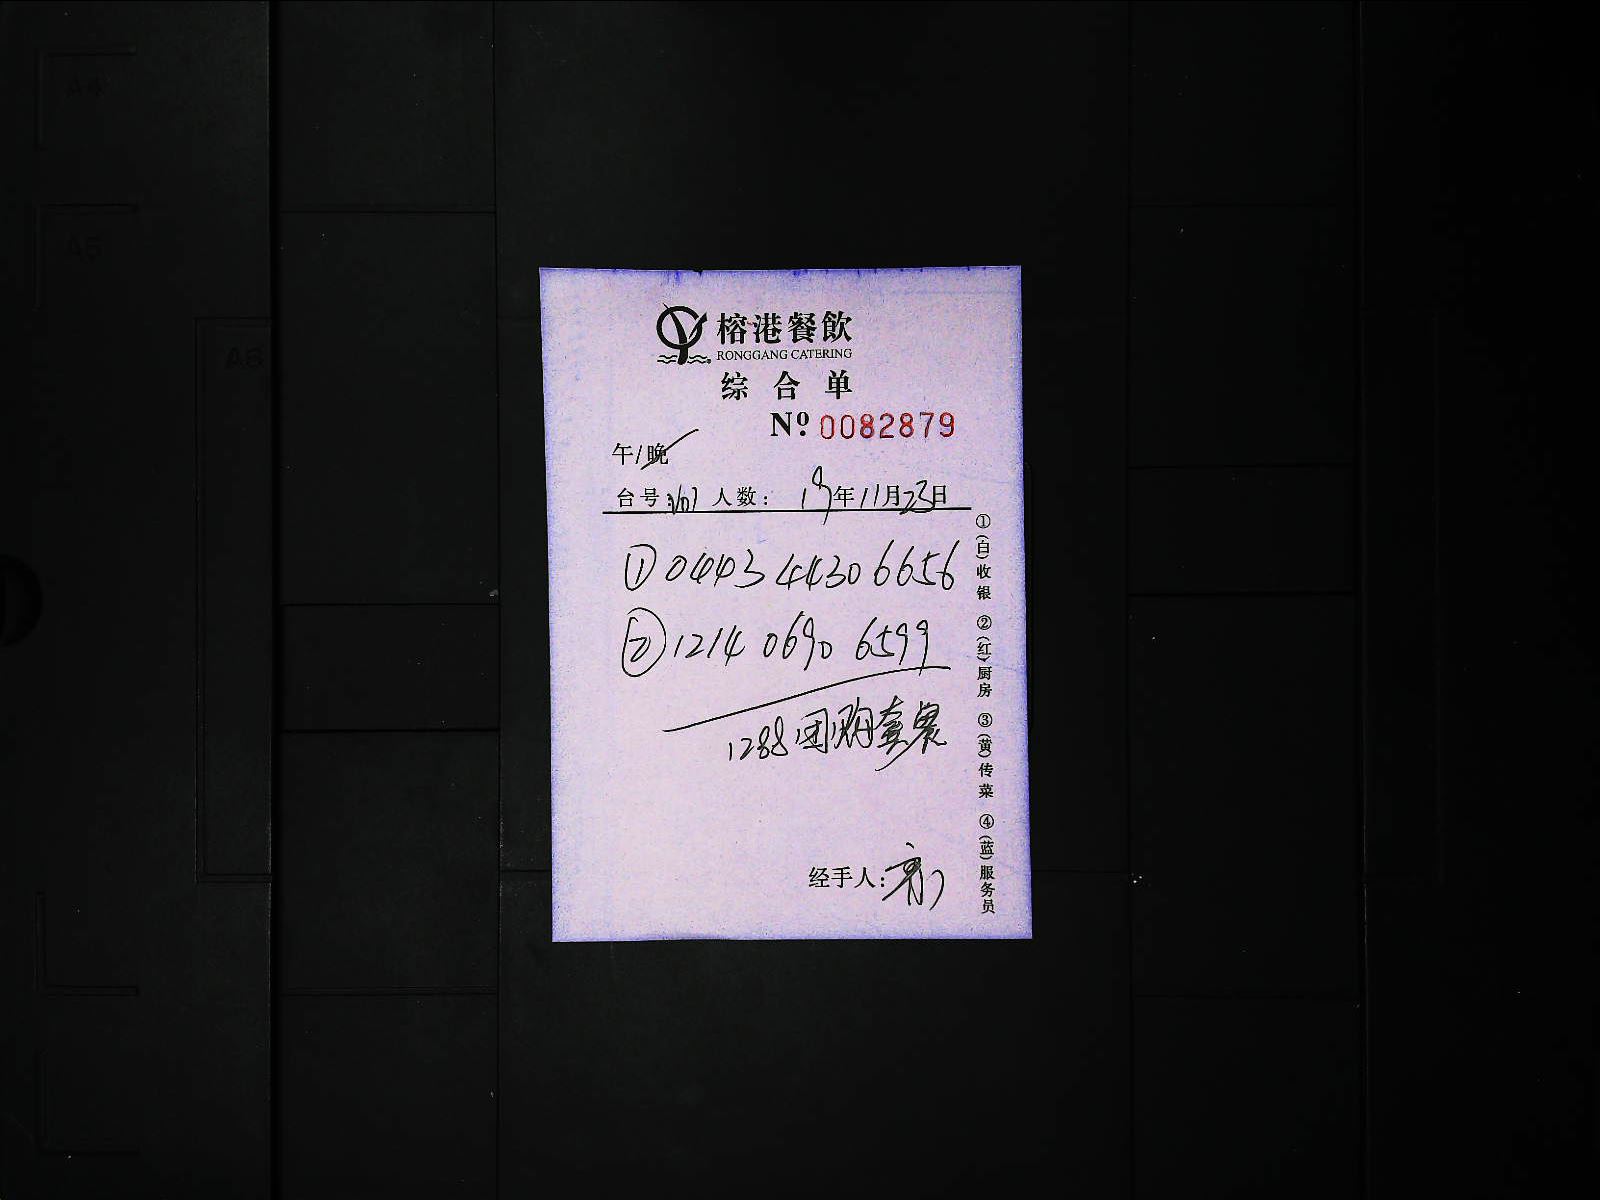 榕港餐飲
RONGGANG CATERING
综合单
Nº 0082879
午/晚
台号:V07 人数: 19年11月23日
①0443 4430 6656
②1214 0690 6599
1288团购套餐
经手人:
①(白)收银 ②(红)厨房 ③(黄)传菜 ④(蓝)服务员